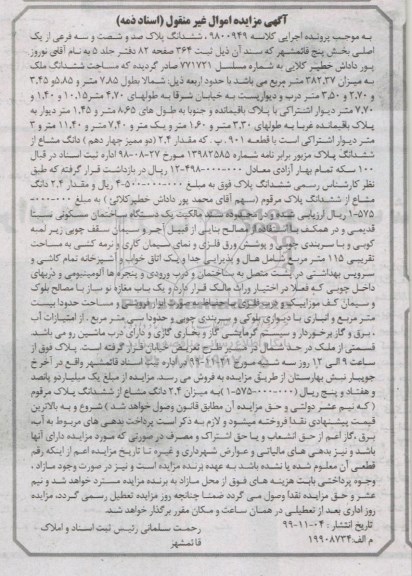 آگهی مزایده اموال غیر منقول (اسناد ذمه)
به موجب پرونده اجرایی کلاسه ۹۸۰۰۹۴۹ ، ششدانگ پلاک صد و شصت و سه فرعی از یک
اصلی بخش پنج قائمشهر که سند آن ذیل ثبت ۳۶۴ صفحه ۸۲ دفتر جلد ۵ به نام آقای نوروز
پور داداش خطیر کلایی به شماره مسلسل ۷۷۱۷۲۱ صادر گردیده که مساحت ششدانگ ملک
به میزان ۳۸۲،۳۷ متر مربع می باشد با حدود اربعه ذیل: شمالا بطول ۷،۸۵ متر و ۵،۸۵و ۳،۴۵
و ۲،۷۰ و ۳،۵۰ متر درب و دیواریست به خیابان شرقا به طولهای ۴،۷۰ متر۱۰،۱۵ و ۱،۴۰ و
۷،۷۰ متر دیوار اشتراکی با پلاک باقیمانده و جنوبا به طول های ۸،۶۵ متر و ۱،۴۵ متر دیوار به
پلاک باقیمانده غربا به طولهای ۳،۳۰ متر و ۱،۶۰ متر و یک متر و ۷،۴۰ متر و ۱۱،۴۰ متر و ۳
متر دیوار اشتراکی است با قطعه ۹۰۱ ب. که مقدار ۲،۴ (دو ممیز چهار دهم) دانگ مشاع از
ششدانگ پلاک مزبور برابر نامه شماره ۱۳۹۸۲۵۸۵ مورخ ۲۷-۰۸-۹۸ اداره ثبت اسناد در قبال
۱۰۰ سکه تمام بهار آزادی معادل ۰۰۰-۰۰۰-۴۹۸-۱۲ ریال در بازداشت قرار گرفته که طبق
نظر کارشناس رسمی ششدانگ پلاک فوق به مبلغ ۰۰۰-۰۰۰-۵۰۰-۴ ریال و مقدار ۲،۴ دانگ
مشاع از ششدانگ پلاک مرقوم (سهم آقای محمد پور داداش خطیرکلائی) به مبلغ ۰۰۰-
۵۷۵-۱ ریال ارزیابی شده و در محدوده سند مالکیت یک دستگاه ساختمان مسکونی نسبتا
قدیمی و در همکف با استفاده از مصالح بنایی از قبیل آجر و سیمان سقف چوبی زیر لمبه
کوبی و با سربندی چوبی و پوشش ورق فلزی و نمای سیمان کاری و نرمه کشی به مساحت
تقریبی ۱۱۵ متر مربع شامل هال و پذیرایی جدا و یک اتاق خواب و آشپزخانه تمام کاشی و
سرویس بهداشتی در پشت متصل به ساختمان و درب ورودی و پنجره ها آلومینیومی و دربهای
داخل چوبی که فعلا در اختیار وراث مالک قرار دارد و یک باب مغازه نو ساز با مصالح بلوک
و سیمان کف موزاییک و درب فلزی
متر مربع و انباری با دیواری بلوکی و سربندی چوبی و حدودا سی متر مربع . از امتیازات آب
، برق و گاز برخوردار و سیستم گرمایشی گاز و بخاری گازی و دارای درب ماشین رو می باشد.
قسمتی از ملک در حد شمال در مسیر طرح تعریض خیابان قرار گرفته است. پلاک فوق از
ساعت ۹ الی ۱۲ روز سه شنبه مورخ ۲۱-۱۱-۹۹ در اداره ثبت اسناد قائمشهر واقع در آخر خ
جویبار نبش بهارستان از طریق مزایده به فروش می رسد. مزایده از مبلغ یک میلیارد و پانصد
و هفتاد و پنج ریال (۰۰۰-۰۰۰-۵۷۵-۱)به میزان ۲،۴ دانگ مشاع از ششدانگ پلاک مرقوم
(که نیم عشر دولتی و حق مزایده آن مطابق قانون وصول خواهد شد) شروع و به بالاترین
قیمت پیشنهادی نقدا فروخته میشود و لازم به ذکر است پرداخت بدهی های مربوط به آب،
برق ،گاز اعم از حق انشعاب و یا حق اشتراک و مصرف در صورتی که مورد مزایده دارای آنها
باشد و نیز بدهی های مالیاتی و عوارض شهرداری و غیره تا تاریخ مزایده اعم از اینکه رقم
قطعی آن معلوم شده یا نشده باشد به عهده برنده مزایده است و نیز در صورت وجود مازاد ،
وجوه پرداختی بابت هزینه های فوق از محل مازاد به برنده مزایده مسترد خواهد شد و نیم
عشر و حق مزایده نقدا وصول می گردد ضمنا چنانچه روز مزایده تعطیل رسمی گردد، مزایده
روز اداری بعد از تعطیلی در همان ساعت و مکان مقرر برگزار خواهد شد.
تاریخ انتشار : ۰۴-۱۱-۹۹
رحمت سلمانی رئیس ثبت اسناد و املاک
م الف:۱۹۹۰۸۷۳۴
قائمشهر